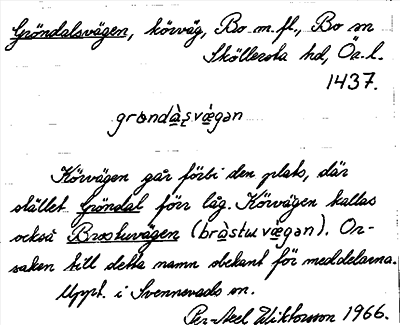 Gröndalsvägen, körväg, Bo m. fl., Bo sn
Sköllersta hd, Ör. l.
1437.
grøndà̱ʂvæ̱gən
Körvägen går förbi den plats, där
stället Gröndal förr låg. Körvägen kallas
också Brostuvägen (bràstuvæ̱gən). Or-
saken till detta namn obekant för meddelarna.
Uppt. i Svennevads sn.
Per-Axel Wiktorsson 1966.